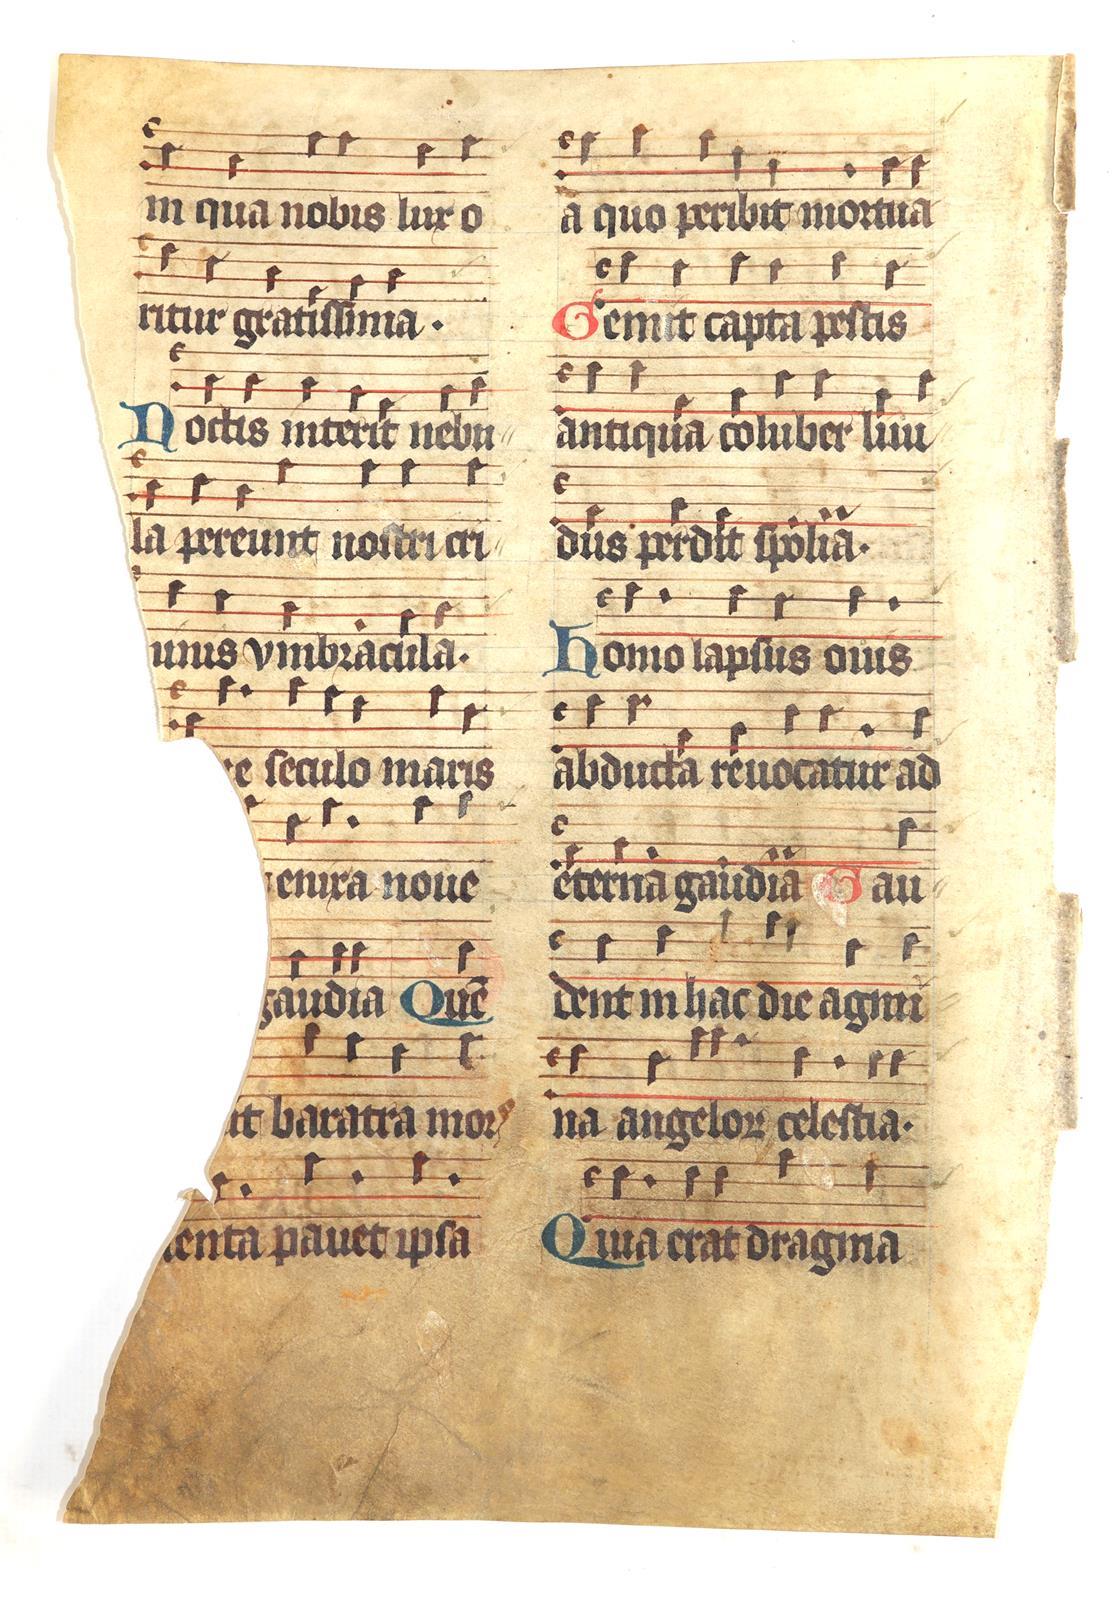 in qua nobis lux o
ritur gratissima.
Noctis interit nebu
la pereunt nostri cri
minis vmbracula.
re seculo maris
enixa noue
gaudia Quē
it baratra mor
menta pauet ipsa
a quo peribit mortua
Gemit capta pestis
antiqua coluber liui
dus perdit spolia.
Homo lapsus ouis
abducta reuocatur ad
eterna gaudia Gau
dent in hac die agmi
na angeloꝝ celestia.
Quia erat dragma